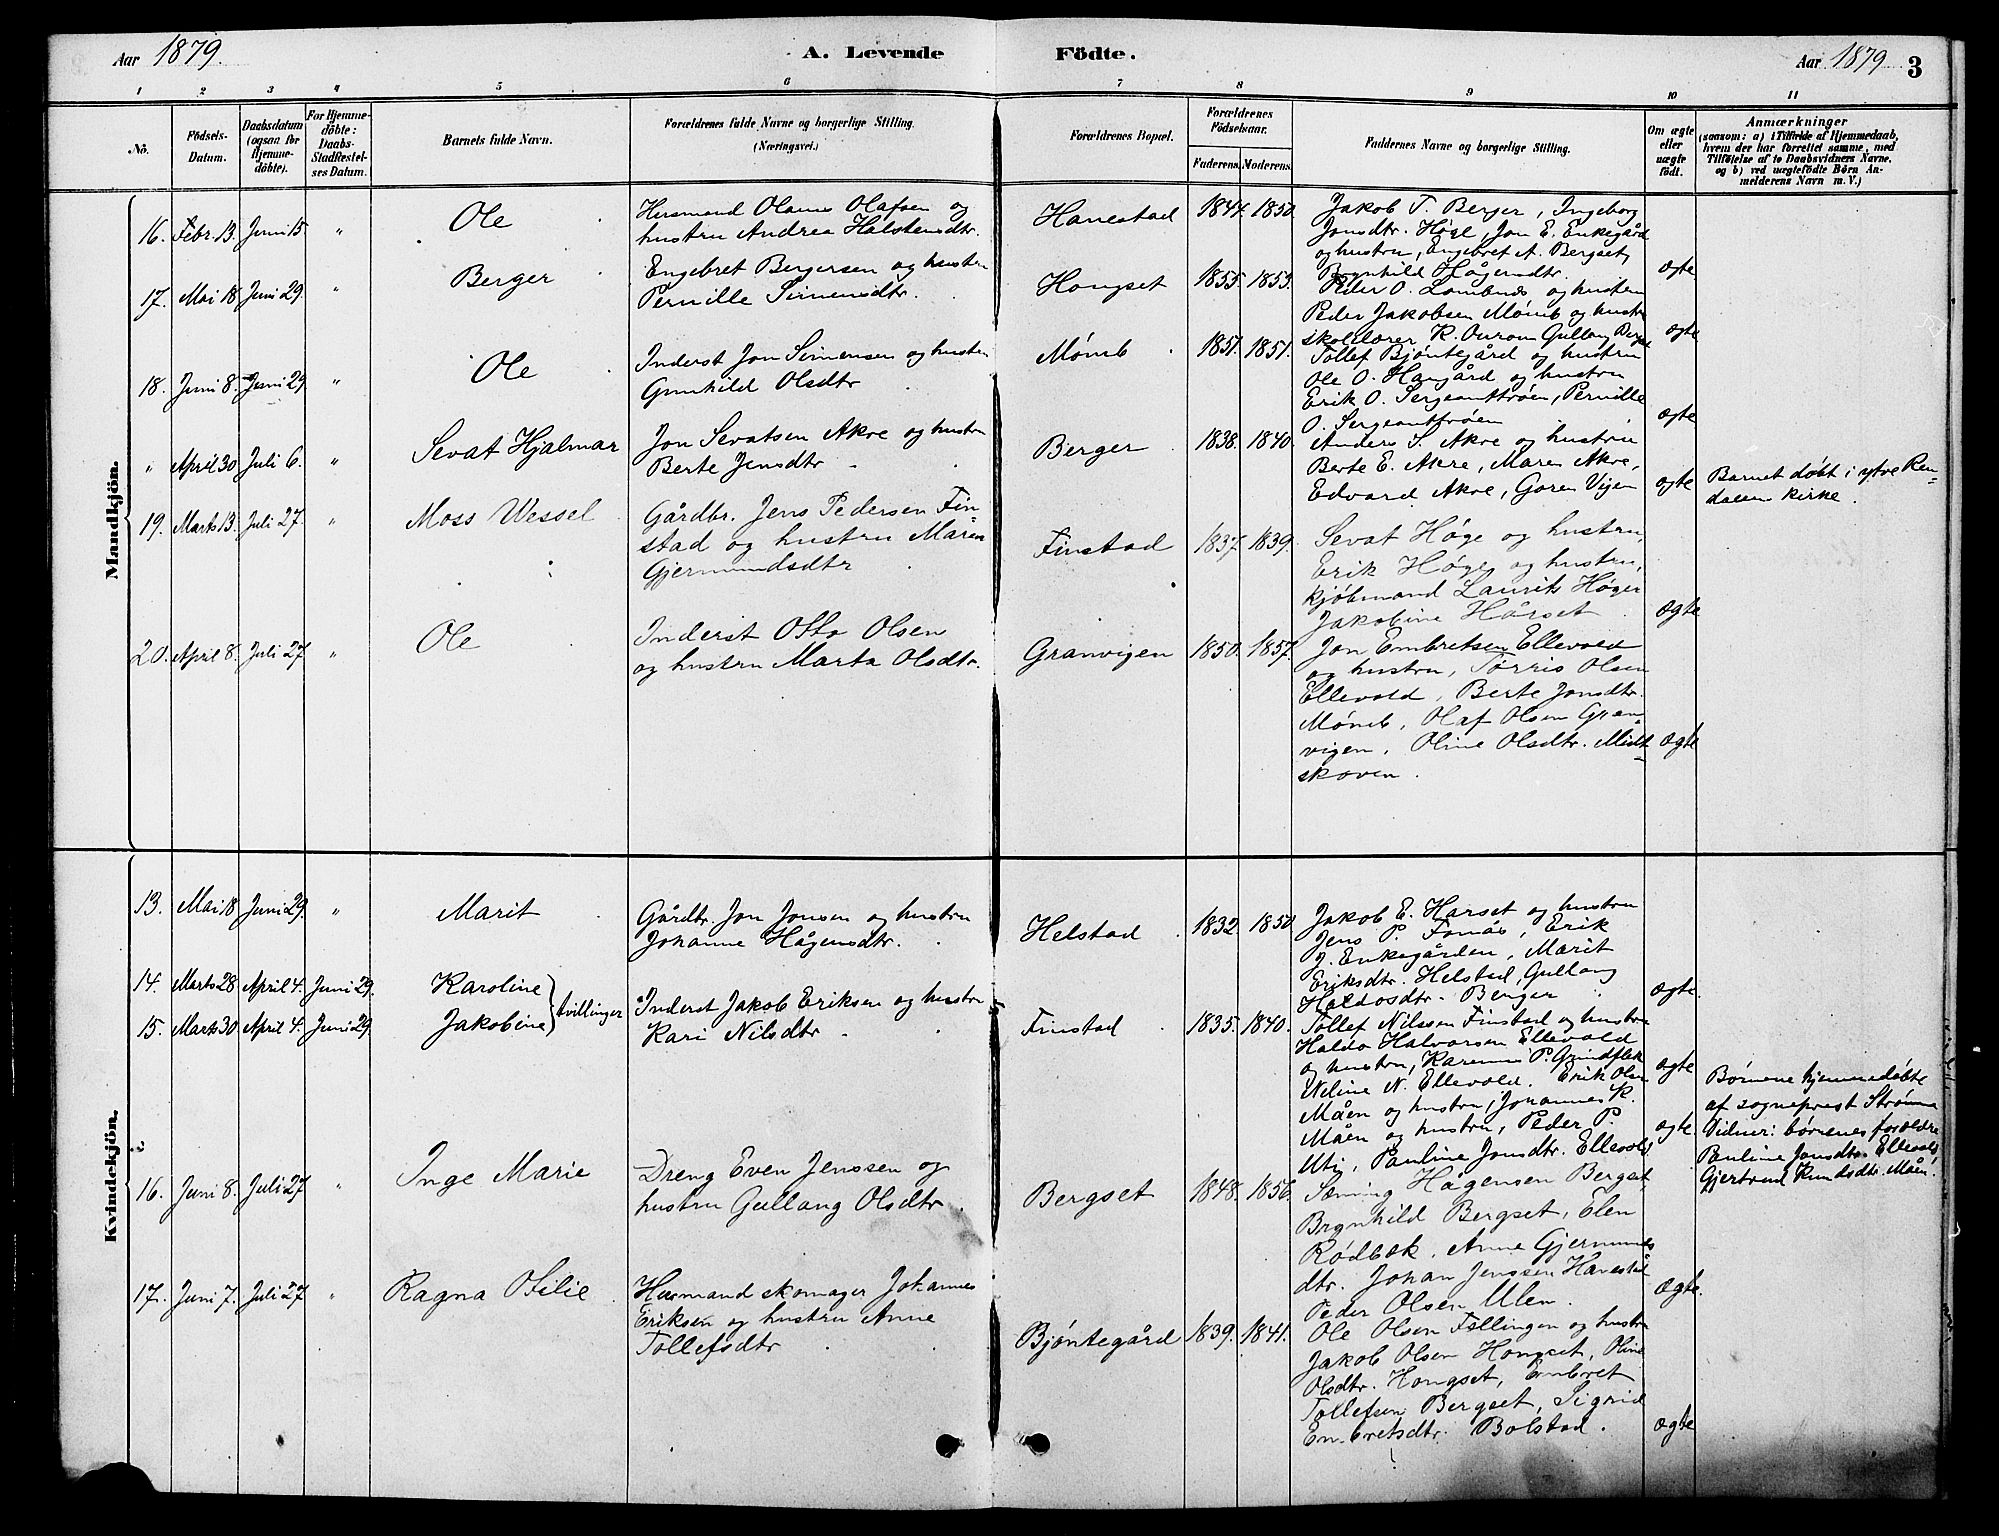 Aar 1879.
A. Levende Födte.
Aar 1879
3
1 2 3 4 5 6 7 8 9 10 11
No.
Födsels-
Datum.
Daabsdatum
(ogsaa for
Hjemme-
döbte).
For Hjemme-
döbte:
Daabs-
Stadfæstel-
ses Datum.
Barnets fulde Navn.
Forældrenes fulde Navne og borgerlige Stilling.
(Næringsvei.)
Forældrenes Bopæl.
Forældrenes
Födselsaar.
Faderens. Moderens.
Faddernes Navne og borgerlige Stilling.
Om ægte
eller
uægte
født.
Anmærkninger
(saasom: a) i Tilfælde af Hjemmedaab,
hvem der har forrettet samme, med
Tilföielse af to Daabsvidners Navne.
og b) ved uægtefödte Børn An-
melderens Navn m. V.)
Mandkjön.
16. Febr. 13. Juni 15 " Ole
Husmand Olaus Olafsen og
hustru Andrea Halstensdtr.
Hanestad 1844. 1850.
Jakob T. Berger, Ingeborg
Jonsdtr. Høge, Jon E. Enkegård
og hustru, Engebret A. Bergset,
Brynhild Hågensdtr.
ægte
17. Mai 18. Juni 29. " Berger
Engebret Bergersen og hustru
Pernille Simensdtr.
Hongset 1855. 1853.
Peder O. Lombnæs og hustru
Peder Jakobsen Mømb og hustru
skolelærer K. Gullaug
ægte
18. Juni 8. Juni 29 " Ole
Inderst Jon Simensen og hustru
Gunhild Olsdtr
Mømb 1851. 1851.
Tollef Bjøntegård og hustru
Ole O. Haugård og hustru
Erik O. Sergeanttrøen, Pernille
O. Sergeanttrøen
ægte
" April 30 Juli 6. " Sevat Hjalmar
Jon Sevatsen Akre og hustru
Berte Jensdtr
Berger 1838. 1840.
Anders S. Akre og hustru
Berte E. Akre, Maren Akre,
Edvard Akre, Goren Vigen
ægte
Barnet døbt i ytre Ren-
dalen kirke.
19. Marts 13. Juli 27. " Moss Wessel
Gårdbr. Jens Pedersen Fin
stad og hustru Maren
Gjermundsdtr
Finstad 1837. 1839.
Sevat Høge og hustru,
Erik Høge og hustru,
kjøbmand Laurits Høgen
Jakobine Hårset
ægte
20. April 8. Juli 27 " Ole
Inderst Otto Olsen
og hustru Marta Olsdtr.
Granvigen 1850. 1857.
Jon Embretsen Ellevold
og hustru, Tørris Olsen
Ellevold, Berte Jonsdtr.
Mømb, Olaf Olsen Gran
vigen, Oline Olsdtr. Midt
skoven.
ægte
Kvindekjön.
13. Mai 18 Juni 29. " Marit
Gårdbr. Jon Jonsen og hustru
Johanne Hågensdtr.
Helstad 1832. 1850
Jakob E. Harset og hustru
Jens P. Fonås, Erik
J. Enkegården, Marit
Eriksdtr. Helstad, Gullaug
Haldosdtr. Berger
ægte.
14. Marts 28 April 4. Juni 29. Karoline
15. Marts 30. April 4. Juni 29. Jakobine
tvillinger
Inderst Jakob Eriksen og hustru
Kari Nilsdtr
Finstad 1835. 1840.
Tollef Nilssen Finstad og hustru
Haldo Halvorsen Ellevold
og hustru, Karenus P. Grindflek
Neline N. Ellevold. Erik Olsen
Måen og hustru, Johannes K.
Måen og hustru, Peder P.
Uti, Pauline Jonsdtr. Ellevold
ægte
ægte
Børnene hjemmedøbte
af sogneprest Strømme
Vidner: børnenes forældre
Pauline Jonsdtr Ellevold,
Gjertrud Knudsdtr. Måen.
16. Juni 8. Juli 27 " Inge Marie
Dreng Even Jenssen og
hustru Gullaug Olsdtr.
Bergset 1848. 1856.
Sæming Hågensen Bergset,
Brynhild Bergset, Elen
Rødbæk, Anne Gjermunds
dtr. Johan Jenssen Hanestad
Peder Olsen Ulen.
ægte.
17. Juni 7. Juli 27 " Ragna Otilie
Husmand skomager Johannes
Eriksen og hustru Anne
Tollefsdtr
Bjøntegård 1839. 1841.
Ole Olsen Fellingen og hustru
Jakob Olsen Hongset, Oline
Olsdtr. Hongset, Embret
Tollefsen Bergset, Sigrid
Embretsdtr. Bolstad.
ægte